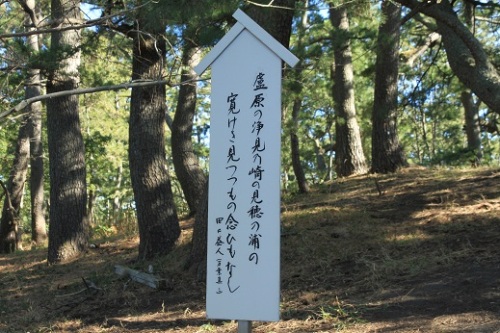 廬原の浄見の崎の見穂の浦の
寛けき見つつもの念ひもなし
田口益人 万葉集